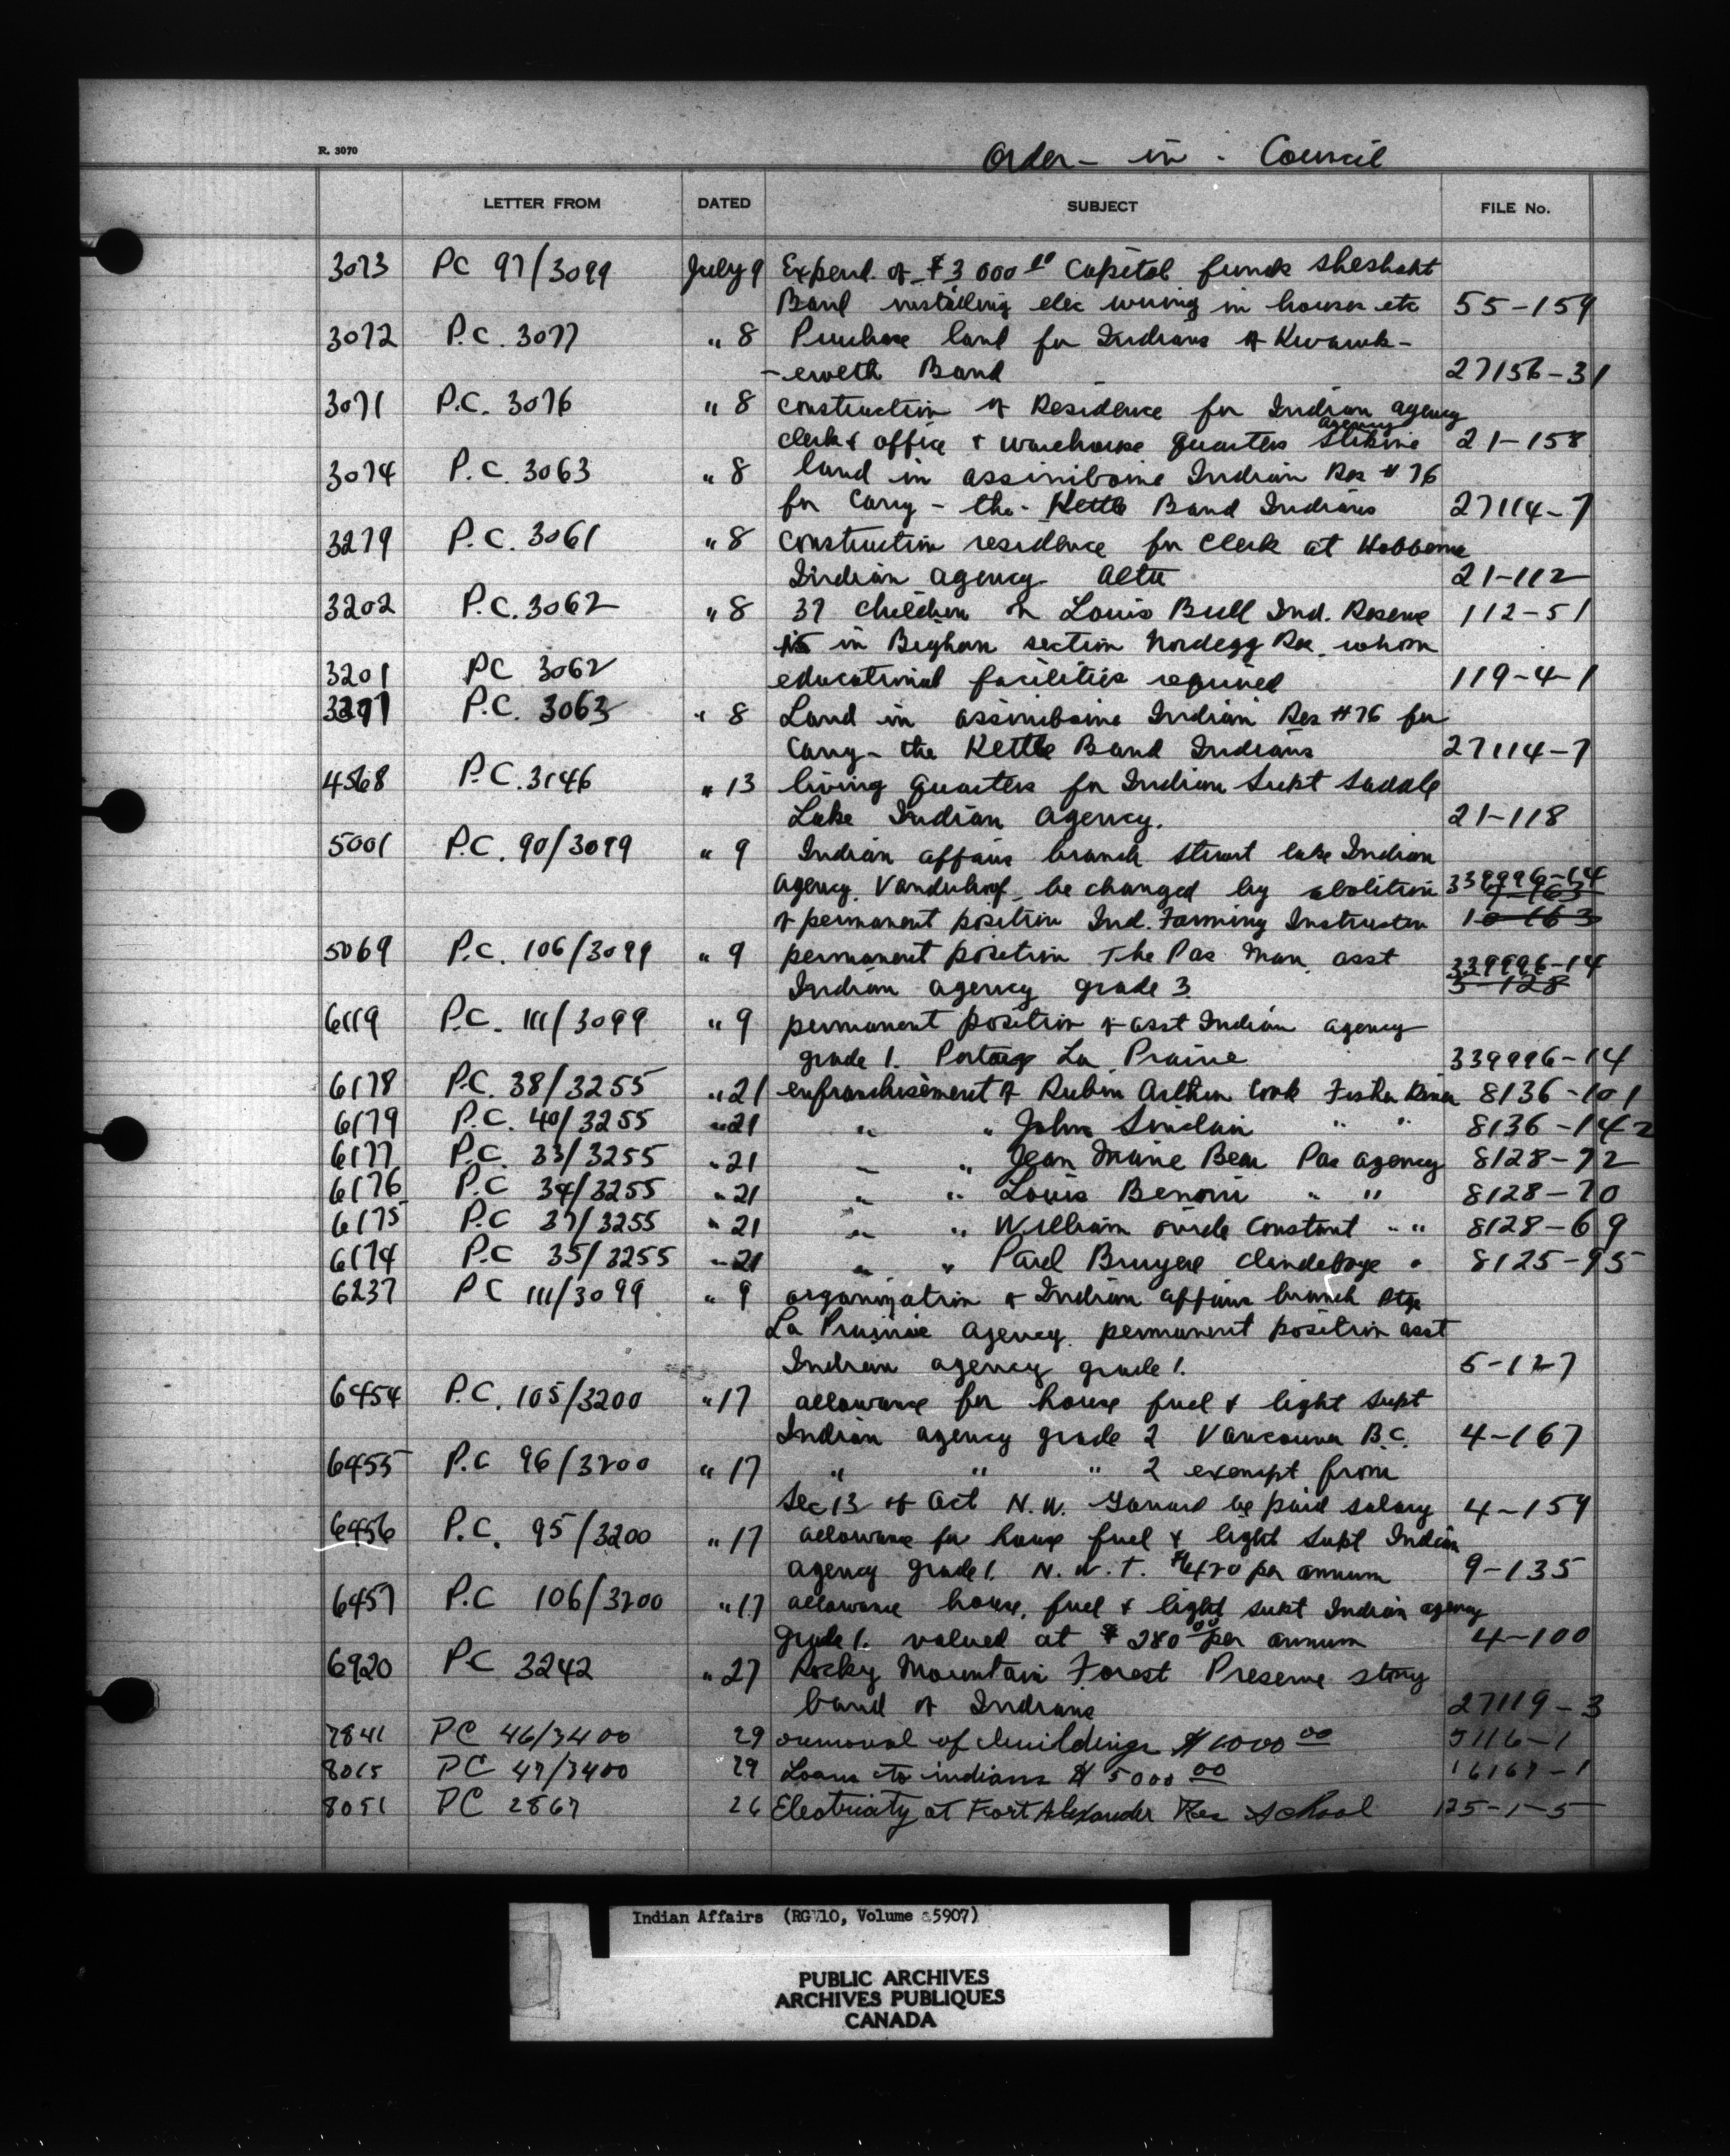 R. 3070
Order - in - Council
LETTER FROM DATED SUBJECT FILE No.
3073 PC 97/3099 July 9 Expend. of $3 000 00 Capital funds Sheshaht
Band installing elec wiring in houses etc 55-159
3072 P.C. 3077 " 8 Purchase land for Indians of Kwawk-
-ewelth Band 27156-31
3071 P.C. 3076 " 8 construction of Residence for Indian agency
clerk & office & warehouse quarters Stikine agency 21-158
3074 P.C. 3063 " 8 land in assiniboine Indian Res # 76
for Carry - the - Kettle Band Indians 27114-7
3279 P.C. 3061 " 8 construction residence for clerk at Hobbema
Indian agency Alta 21-112
3202 P.C. 3062 " 8 37 children on Louis Bull Ind. Reserve 112-51
15 in Bighorn section Nordegg Res. whom
3201 PC 3062 educational facilities required 119-4-1
P.C. 3063 " 8 Land in assiniboine Indian Res #76 for
Carry - the Kettle Band Indians 27114-7
4568 P.C. 3146 " 13 living quarters for Indian Supt Saddle
Lake Indian Agency. 21-118
5001 P.C. 90/3099 " 9 Indian affairs branch Stuart lake Indian
agency. Vanderhoof be changed by abolition 339996-14
of permanent position Ind. Farming Instructor 10-163
5069 P.C. 106/3099 " 9 permanent position The Pas Man. asst 339996-14
Indian agency grade 3 5-128
6119 P.C. 111/3099 " 9 permanent position of asst Indian agency
grade 1. Portage La Prairie 339996-14
6178 P.C. 38/3255 " 21 enfranchisement of Rubin Arthur Cook Fisher River 8136-101
6179 P.C. 40/3255 " 21 " " John Sinclair " " 8136-142
6177 P.C. 33/3255 " 21 " " Jean Marie Bear Pas agency 8128-72
6176 P.C 34/3255 " 21 " " Louis Benoni " " 8128-70
6175 P.C 37/3255 " 21 " " William ovide Constant " " 8128-69
6174 P.C 35/3255 " 21 " " Paul Bruyere Clandeboye " 8125-95
6237 PC 111/3099 " 9 organization of Indian affairs branch Ptge
La Prairie agency permanent position asst
Indian agency grade 1. 5-127
6454 P.C. 105/3200 " 17 allowance for house fuel & light Supt
Indian agency grade 2 Vancouver B.C. 4-167
6455 P.C 96/3200 " 17 " " " 2 exempt from
Sec 13 of Act N.W. Garrard be paid salary 4-159
6456 P.C. 95/3200 " 17 allowance for house fuel & light Supt Indian
agency grade 1. N.W.T. $420 per annum 9-135
6457 P.C 106/3200 " 17 allowance house, fuel & light supt Indian agency
grade 1. valued at $ 280 00 per annum 4-100
6920 PC 3242 " 27 Rocky Mountain Forest Preserve stony
band of Indians 27119-3
7841 PC 46/3400 29 removal of buildings $1000 00 5116-1
8015 PC 47/3400 29 Loans to indians $ 5000 00 16167-1
8051 PC 2867 26 Electricity at Fort Alexander Res School 125-1-5
Indian Affairs (RG 10, Volume 5907)
PUBLIC ARCHIVES
ARCHIVES PUBLIQUES
CANADA